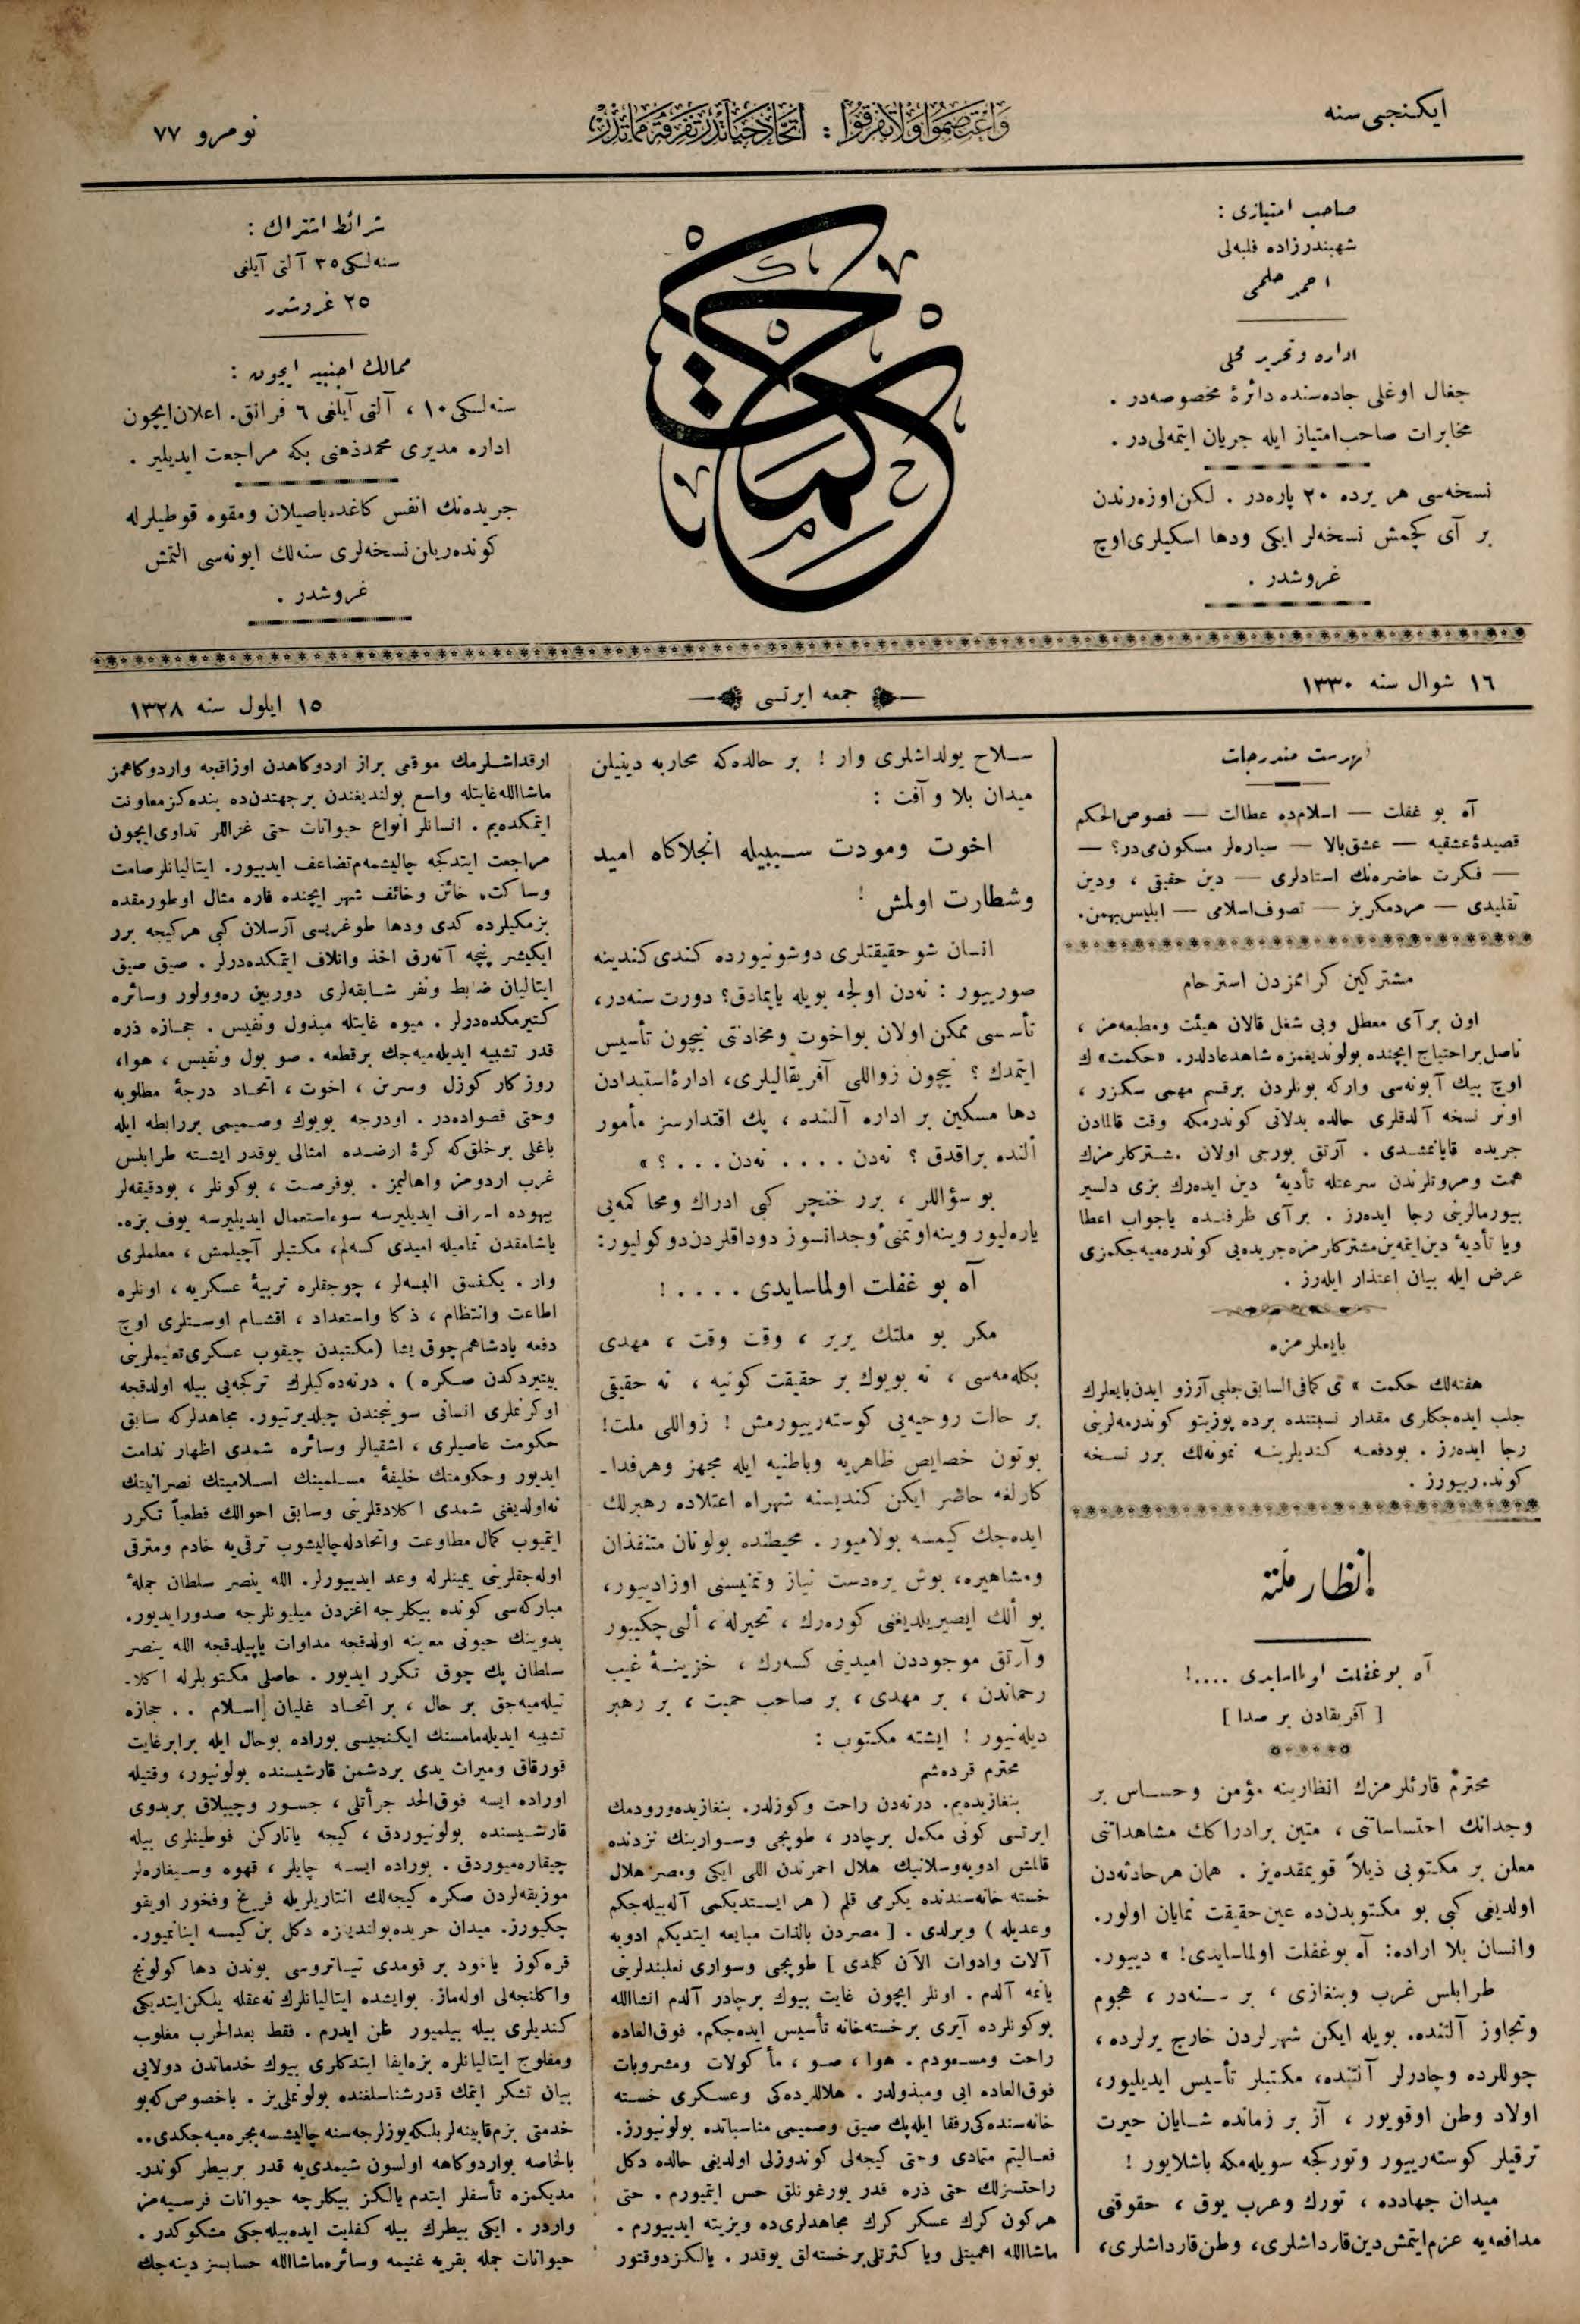 ايكنجى سنه
واعتصموا ولا تفرقوا : اتحاد حياتدر تفرقه مماتدر
نومرو ٧٧
صاحب امتيازى :
شهبندرزاده فلبه‌لى
احمد حلمى
اداره و تحرير محلى
جغال اوغلى جاده‌سنده دائرۀ مخصوصه‌در .
مخابرات صاحب امتياز ايله جريان ايتمه‌لى‌در .
نسخه‌سى هر يرده ٢٠ پاره‌در . لكن اوزه‌رندن
بر آى كچمش نسخه‌لر ايكى ودها اسكيلرى اوچ
غروشدر .
حكمت
شرائط اشتراك :
سنه‌لكى ٣٥ آلتى آيلغى
٢٥ غروشدر
ممالك اجنبيه ايچون :
سنه‌لكى ١٠ ، آلتى آيلغى ٦ فرانق. اعلان ايچون
اداره مديرى محمدذهنى بكه مراجعت ايديلير .
جريده‌نك انفس كاغده باصيلان ومقوه قوطيلرله
كونده‌ريلن نسخه‌لرى سنه‌لك ابونه‌سى التمش
غروشدر .
١٦ شوال سنه ١٣٣٠
جمعه ايرتسى
١٥ ايلول سنه ١٣٢٨
فهرست مندرجات
آه بو غفلت — اسلام‌ده عطالت — فصوص الحكم
قصيدۀ عشقيه — عشق بالا — سياره‌لر مسكون‌مى‌در؟ —
— فكرت حاضره‌نك استادلرى — دين حقيقى ، ودين
تقليدى — مردمكريز — تصوف اسلامى — ابليس بهمن.
مشتركين كرامزدن استرحام
اون بر آى معطل وبى شغل قالان هيئت ومطبعه‌مز ،
ناصل بر احتياج ايچنده بولونديغمزه شاهد عادلدر. «حكمت» ك
اوچ بيك آبونه‌سى واركه بونلردن برقسم مهمى سكزر ،
اونر نسخه آلدقلرى حالده بدلاتى كوندرمكه وقت قالمادن
جريده قاپانمشدى . آرتق بورجى اولان مشتركلرمزك
همت ومروتلرندن سرعتله تأديۀ دين ايده‌رك بزى دلسير
بيورمالرينى رجا ايده‌رز . بر آى ظرفنده ياجواب اعطا
ويا تأديۀ دين ايتمه‌ين مشتركلرمزه جريده‌يى كوندره‌ميه‌جكمزى
عرض ايله بيان اعتذار ايله‌رز .
بايعلرمزه
هفته‌لك حكمت » ى كمافى السابق جلبى آرزو ايدن بايعلرك
جلب ايده‌جكلرى مقدار نسبتنده برده پوزيتو كوندرمه‌لرينى
رجا ايده‌رز . بودفعه كنديلرينه نمونه‌لك برر نسخه
كونده‌رييورز .
انظار ملته
آه بو غفلت اولماسايدى ....!
[ آفريقادن بر صدا ]
محترم قارئلرمزك انظارينه مؤمن وحساس بر
وجدانك احتساساتنى ، متين برادراكك مشاهداتنى
معلن بر مكتوبى ذيلاً قويمقده‌يز . همان هر حادثه‌دن
اولديغى كبى بو مكتوبدن‌ده عين حقيقت نمايان اولور.
وانسان بلا اراده: آه بو غفلت اولماسايدى! » دييور.
طرابلس غرب وبنغازى ، بر سنه‌در ، هجوم
وتجاوز آلتنده. بويله ايكن شهرلردن خارج يرلرده ،
چوللرده وچادرلر آلتنده، مكتبلر تأسيس ايديليور،
اولاد وطن اوقويور ، آز بر زمانده شايان حيرت
ترقيلر كوسته‌رييور وتوركجه سويله‌مكه باشلايور !
ميدان جهادده ، تورك وعرب يوق ، حقوقنى
مدافعه‌يه عزم ايتمش دين قارداشلرى، وطن قارداشلرى،
سلاح يولداشلرى وار ! بر حالده‌كه محاربه دينيلن
ميدان بلا و آفت :
اخوت ومودت سببيله انجلاكاه اميد
وشطارت اولمش !
انسان شو حقيقتلرى دوشونيورده كندى كندينه
صورييور : نه‌دن اولجه بويله ياپمادق؟ دورت سنه‌در،
تأسسى ممكن اولان بو اخوت ومخادنتى نيچون تأسيس
ايتمدك ؟ نيچون زواللى آفريقاليلرى، ادارۀ استبدادن
دها مسكين بر اداره آلتنده ، پك اقتدارسز مأمور
النده براقدق ؟ نه‌دن .... نه‌دن ...؟ »
بو سؤاللر ، برر خنجر كبى ادراك ومحاكمه‌يى
ياره‌ليور وينه اوتمنئ وجدانسوز دوداقلردن دوكوليور:
آه بو غفلت اولماسايدى ....!
مكر بو ملتك يرير ، وقت وقت ، مهدى
بكله‌مه‌سى ، نه بويوك بر حقيقت كونيه ، نه حقيقى
بر حالت روحيه‌يى كوسته‌رييورمش ! زواللى ملت!
بوتون خصايص ظاهريه وباطنيه ايله مجهز وهر فدا-
كارلغه حاضر ايكن كنديسنه شهراه اعتلاده رهبرلك
ايده‌جك كيمسه بولاميور . محيطنده بولونان متنفذان
ومشاهيره، بوش يره‌دست نياز وتمنيسنى اوزادييور،
بو ألك ايصيريلديغنى كوره‌رك ، تحيرله ، ألى چكييور
وآرتق موجوددن اميدينى كسه‌رك ، خزينۀ غيب
رحماندن ، بر مهدى ، بر صاحب حميت ، بر رهبر
ديله‌نيور ! ايشته مكتوب :
محترم قرده‌شم
بنغازيده‌يم. درنه‌دن راحت وكوزلدر. بنغازيده‌ورودمك
ايرتسى كونى مكمل برچادر ، طوپجى وسوارينك نزدنده
قالمش ادويه‌وسلانيك هلال احمرندن اللى ايكى ومصر هلال
خسته خانه‌سندنده يكرمى قلم ( هر ايستديكمى آله‌بيله‌جكم
وعديله ) ويرلدى . [ مصردن بالذات مبايعه ايتديكم ادويه
آلات وادوات الآن كلمدى ] طوپجى وسوارى نعلبندلرينى
يانمه آلدم . اونلر ايچون غايت بيوك برچادر آلدم انشاالله
بوكونلرده آيرى بر خسته‌خانه تأسيس ايده‌جكم. فوق‌العاده
راحت ومسعودم . هوا ، صو ، مأكولات ومشروبات
فوق‌العاده ايى ومبذولدر . هلاللرده‌كى وعسكرى خسته
خانه‌سنده‌كى رفقا ايله پك صيق وصميمى مناسباتده بولونيورز.
فعاليتم متمادى وحتى كيجه‌لى كوندوزلى اولديغى حالده دكل
راحتسزلك حتى ذره قدر يورغونلق حس ايتميورم . حتى
هركون كرك عسكر كرك مجاهدلرى‌ده ويزيته ايدييورم .
ماشاالله اهميتلى ويا كثرتلى بر خسته‌لق يوقدر . يالكز دوقتور
ارقداشلرمك موقعى براز اردوكاهدن اوزاقجه واردوكاهمز
ماشاالله غايتله واسع بولنديغندن برجهتدن‌ده بنده‌كزمعاونت
ايتمكده‌يم . انسانلر انواع حيوانات حتى غزاللر تداوى ايچون
مراجعت ايتدكجه چاليشمه‌م تضاعف ايدييور. ايتاليانلر صامت
وساكت، خائن وخائف شهر ايچنده فاره مثال اوطورمقده
بزمكيلرده كدى ودها طوغريسى آرسلان كبى هركيجه برر
ايكيشر پنچه آته‌رق اخذ واتلاف ايتمكده‌درلر . صيق صيق
ايتاليان ضابط ونفر شابقه‌لرى دوربين ره‌وولور وسائره
كتيرمكده‌درلر . ميوه غايتله مبذول ونفيس . حجازه ذره
قدر تشبيه ايديله‌ميه‌جك برقطعه . صو بول ونفيس ، هواء
روزكار كوزل وسرين ، اخوت ، اتحاد درجۀ مطلوبه
وحتى قصواده‌در . اودرجه بويوك وصميمى بررابطه ايله
باغلى بر خلق كه كرۀ ارضده امثالى يوقدر ايشته طرابلس
غرب اردومز واهاليمز . بوفرصت ، بوكونلر ، بودقيقه‌لر
بيهوده اسراف ايديليرسه سوءاستعمال ايديليرسه يوف بزه.
ياشامقدن تماميله اميدى كسه‌لم، مكتبلر آچيلمش ، معلملرى
وار . يكنسق البسه‌لر ، چوجقلره تربيۀ عسكريه ، اونلره
اطاعت وانتظام ، ذكا واستعداد ، اقشام اوستلرى اوچ
دفعه پادشاهم چوق يشا (مكتبدن چيقوب عسكرى تعليملرينى
بيتيردكدن صكره ) . درنه‌ده‌كيلرك تركجه‌يى بيله اولدقجه
اوكرنملرى انسانى سونجندن چيلديرتيور. مجاهدلركه سابق
حكومت عاصيلرى ، اشقيالر وسائره شمدى اظهار ندامت
ايديور وحكومتك خليفۀ مسلمينك اسلاميتك نصرانيتك
نه‌اولديغنى شمدى اكلادقلرينى وسابق احوالك قطعياً تكرر
ايتميوب كمال مطاوعت واتحادله چاليشوب ترقى‌يه خادم ومترقى
اوله‌جقلرينى يمينلرله وعد ايدييورلر. الله ينصر سلطان جملۀ
مباركه‌سى كونده بيكلرجه اغزدن ميليونلرجه صدورايديور.
بدوينك حيوانى معاينه اولدقجه مداوات ياپيلدقجه الله ينصر
سلطان پك چوق تكرر ايديور . حاصلى مكتوبلرله اكلا-
تيله‌ميه‌جق بر حال ، بر اتحاد غليان اسلام .. حجازه
تشبيه ايديله‌مامسنك ايكنجيسى بوراده بوحال ايله برابر غايت
قورقاق وميراث يدى بردشمن قارشيسنده بولونيور، وقتيله
اوراده ايسه فوق‌الحد جرأتلى ، جسور وچيپلاق بربدوى
قارشيسنده بولونيوردق ، كيجه ياتاركن فوطينلرى بيله
چيقاره‌ميوردق . بوراده ايسه چايلر ، قهوه وسيغاره‌لر
موزيقه‌لردن صكره كيجه‌لك انتاريلريله فرغ وفخور اويقو
چكيورز. ميدان حربده‌بولنديغمزه دكل بن كيمسه اينانميور.
قره‌كوز ياخود بر قومدى تياتروسى بوندن دها كولونج
واكلنجه‌لى اوله‌ماز. بوايشده ايتاليانلرك نه‌عقله يلكن ايتديكنى
كنديلرى بيله بيلميور ظن ايدرم . فقط بعدالحرب مغلوب
ومفلوج ايتاليانلره بزه‌ايفا ايتدكلرى بيوك خدماتدن دولايى
بيان تشكر ايتمك قدرشناسلغنده بولونملى‌يز . باخصوص كه‌بو
خدمتى بزم قابينه‌لر بلكه‌يوزلرجه‌سنه چاليشسه يجره‌ميه‌جكدى..
بالخاصه بواردوكاهه اولسون شيمدى‌يه قدر بربيطر كوندر-
مديكمزه تأسفلر ايتدم يالكز بيكلرجه حيوانات فرسيه‌مز
واردر . ايكى بيطرك بيله كفايت ايده‌بيله‌جكى مشكوكدر .
حيوانات جمله بقريه غنيمه وسائره ماشاالله حسابسز دينه‌جك